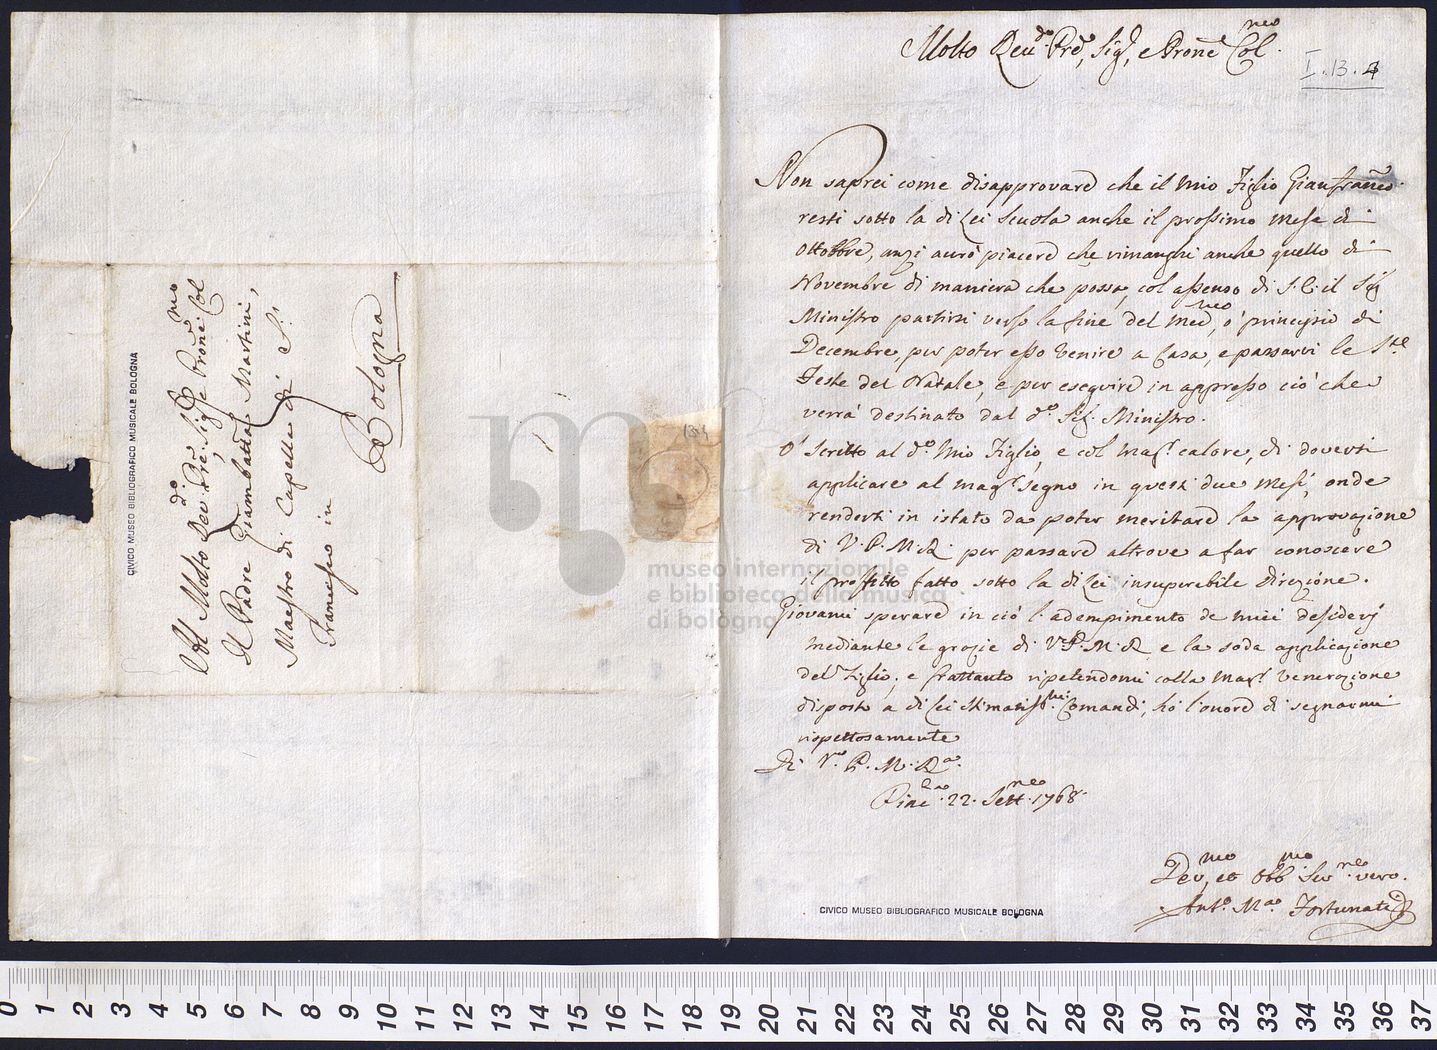 Al Molto Rev.do Pre, Sig.re e Prone Col.mo
Il Padre Giambatta Martini,
Maestro di Capella di S.
Francesco in
Bologna
CIVICO MUSEO BIBLIOGRAFICO MUSICALE BOLOGNA
Molto Reu.do Pre, Sig., e Prone Col.mo
I.13.
Non saprei come disapprovare che il mio Figlio Gianfranco
resti sotto la di Lei Scuola anche il prossimo Mese di
Ottobre, anzi aurò piacere che rimanghi anche quello di
Novembre di maniera che possa, col assenso di S.E. il Sig.
Ministro partirsi verso la fine del med.mo, o' principio di
Decembre, per poter esso venire a Casa, e passarvi le S.te
Feste del Natale, e per eseguire in appresso ciò che
verrà destinato dal d.o Sig. Ministro.
O' Scritto al d.o Mio Figlio, e col mag.r calore, di doversi
applicare al mag.r segno in questi due Mesi, onde
rendersi in istato da poter meritare la approvazione
di V.P.M.R. per passare altrove a far conoscere
il profitto fatto sotto la di Lei insuperabile direzione.
Giovami sperare in ciò l'adempimento de miei desiderj
mediante le grazie di V.P.M.R. e la soda applicazione
del Figlio, e frattanto ripetendomi colla mag.r venerazione
disposto a di Lei stimatiss.mi Comandi, hò l'onore di segnarmi
rispettosamente
Di V.P.M.R.
Piac.za 22. Sett.re 1768.
Dev.mo, et Obb.mo Ser.re vero.
Ant.o M.a Fortunati
CIVICO MUSEO BIBLIOGRAFICO MUSICALE BOLOGNA
museo internazionale
e biblioteca della musica
di bologna
0 1 2 3 4 5 6 7 8 9 10 11 12 13 14 15 16 17 18 19 20 21 22 23 24 25 26 27 28 29 30 31 32 33 34 35 36 37